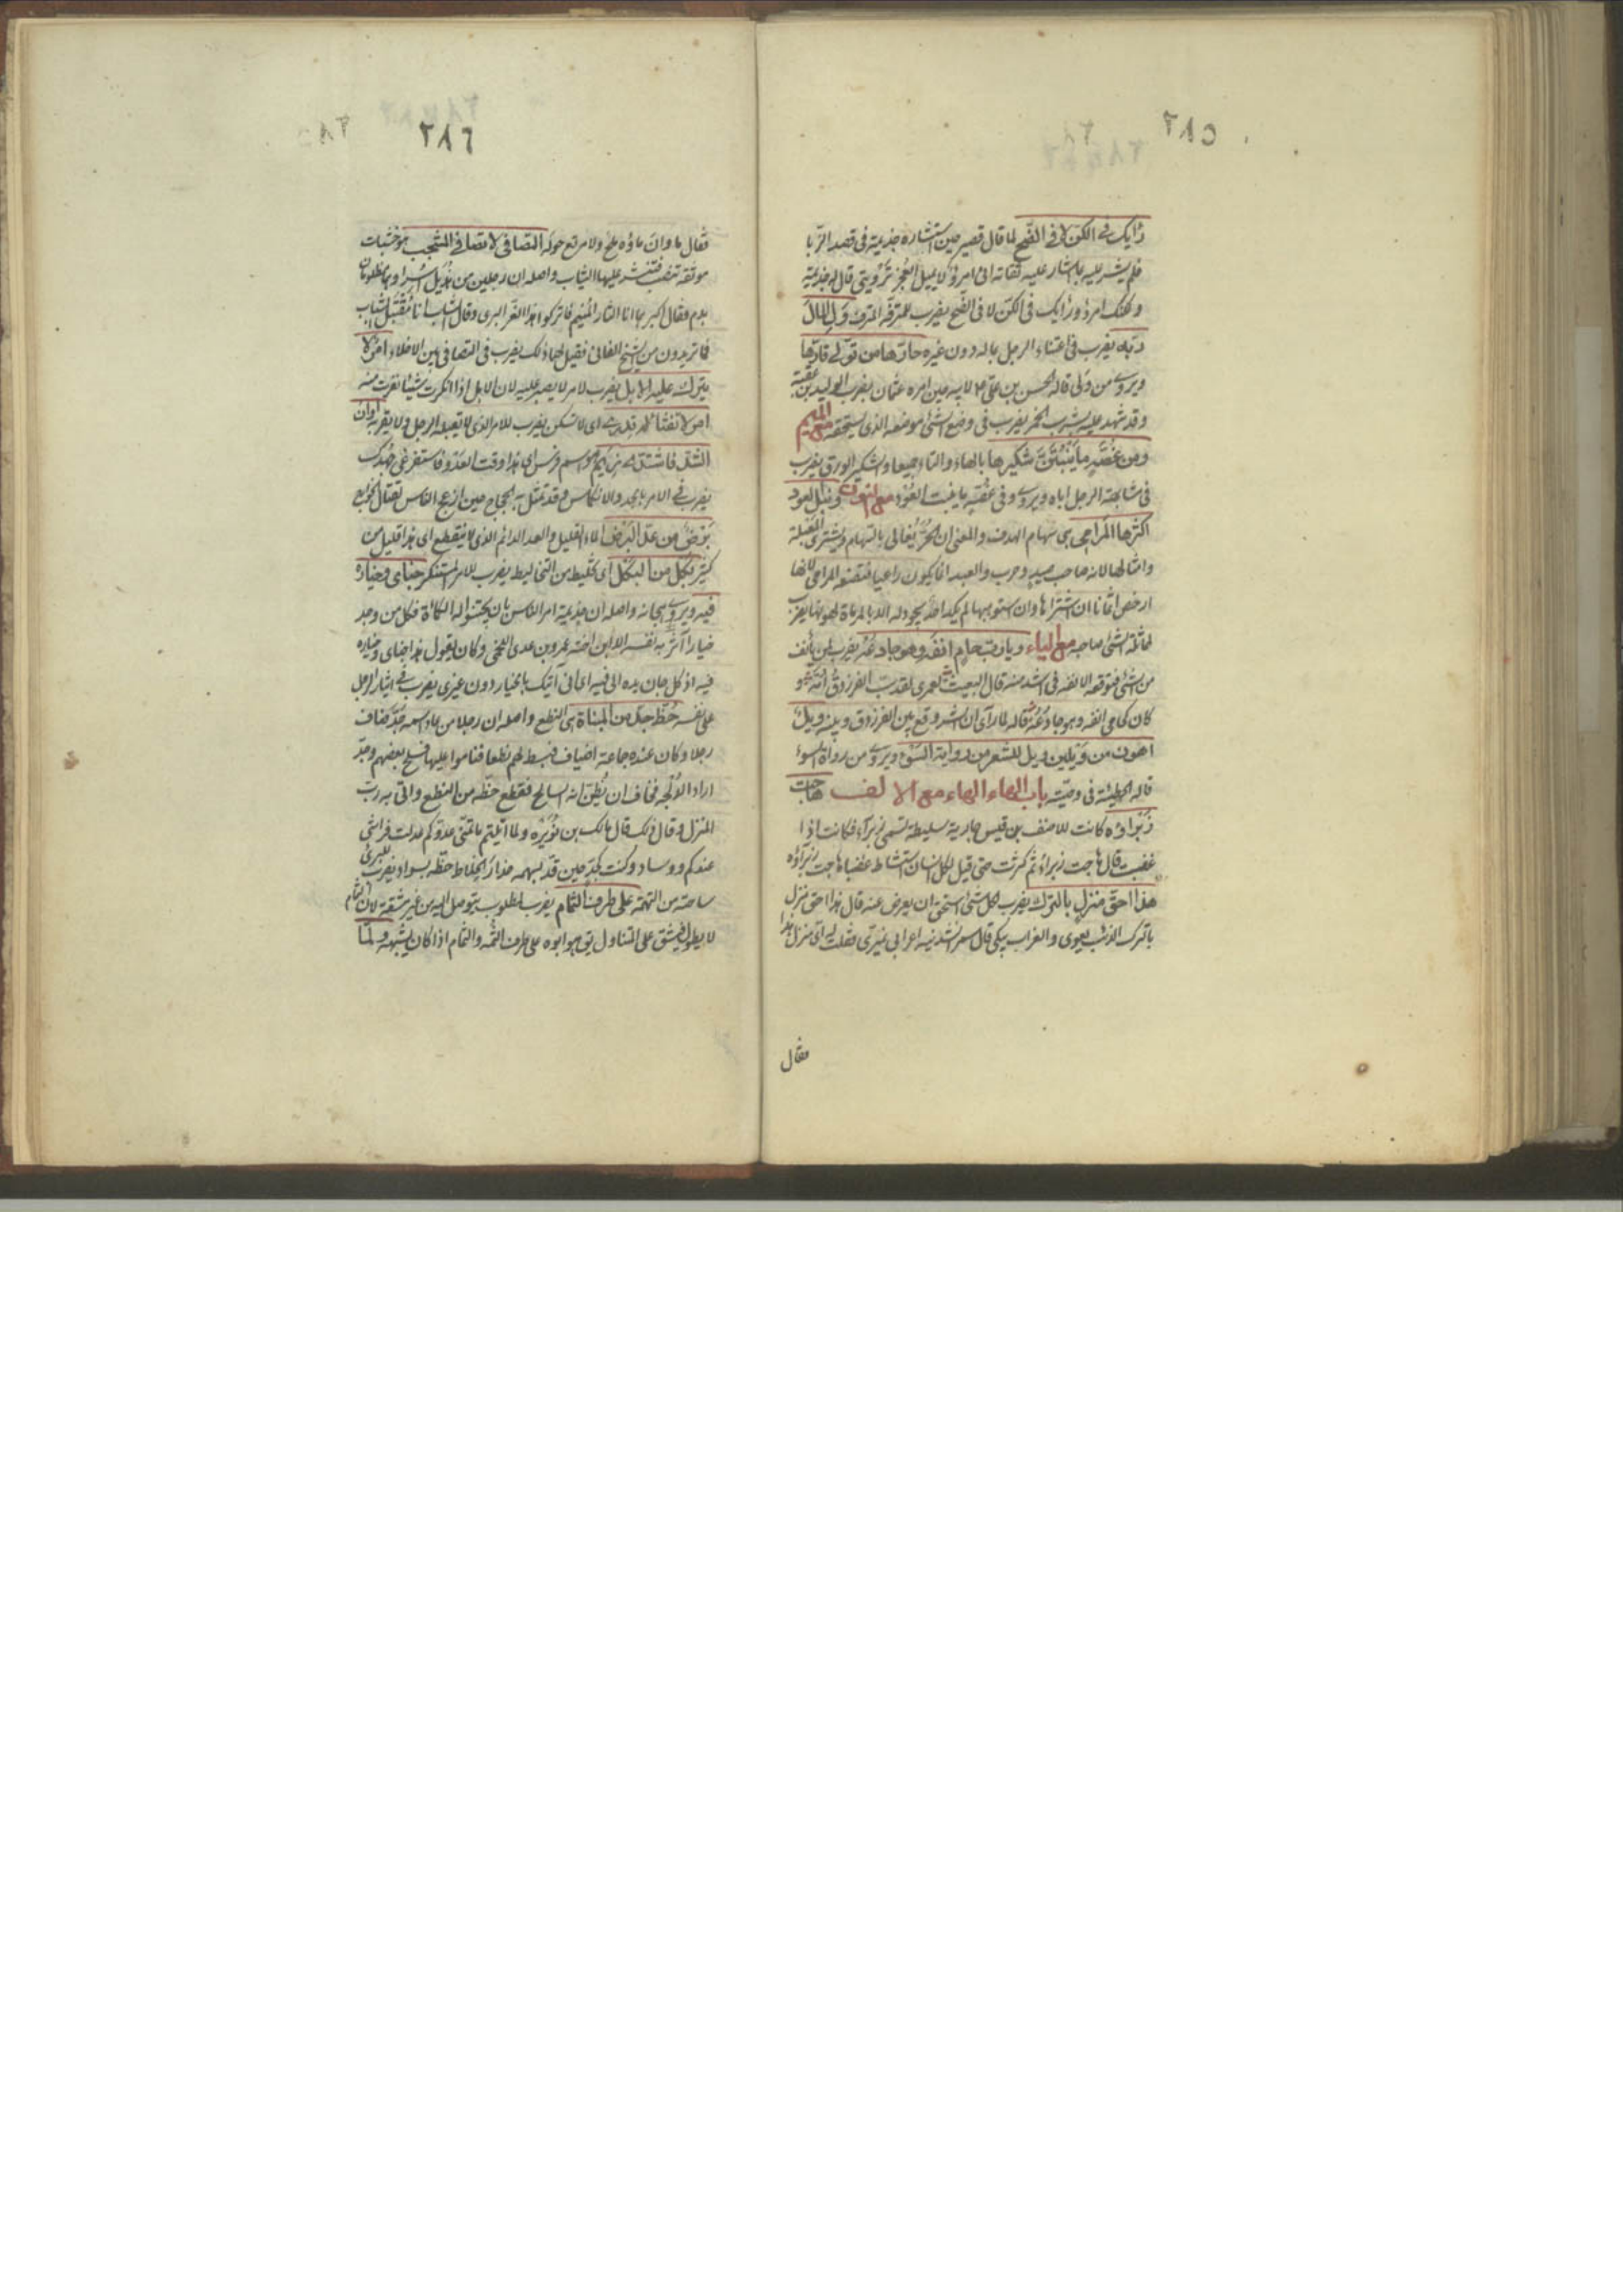 ٢٨٥
رأيك في الكن لا في الضح لما قال قصير حين استشاره جذيمة في قصد الزبا
فلم يشر عليه بما اشار عليه ثقاته انى امرؤ لا يميل العجز ترويتي قال له جذيمة
ولكنك امرؤ ورأيك في الكن لا في الضح يضرب للمترفه المترف ول المال
ربه يضرب في اعتناء الرجل بماله دون غيره حارها من تولى قارها
ويروى من ولى قاله الحسن بن على ع لابيه حين امره عثمان بضرب الوليد بن عقبة
وقد شهد عليه بشرب الخمر يضرب في وضع الشئ موضعه الذى يستحقه مع الميم
ومن عضة ما ينبتن شكيرها بالهاء والتاء جميعا والشكير الورق يضرب
في مشابهة الرجل اباه ويروى وفي عضة ما ينبت العود مع النون ونبل العبد
اكثرها المرامى هى سهام الهدف والمعنى ان الحر يغالى بالسهام ويشترى المعبلة
وامثالها لانه صاحب صيد وحرب والعبد انما يكون راعيا فتقنعه المرامى لانها
ارخص اثمانا ان اشتراها وان استوهبها لم يكد احد يجود له الا بالمرماة
لمماثلة الشئ صاحبه مع الياء
من الشئ فتوقعه الانفة في اشد منه قال البعيث لعمرى لقد
كان كحامى انفه وهو جادعه قاله لما رأى ان الشر وقع بين الفرزدق وبينه ويل
اهون من ويلين ويل للشعر من رواية السوء ويروى من رواة السوء
قاله الحطيئة في وصيته باب الهاء الهاء مع الالف هاجت
زبراؤه كانت للاحنف بن قيس جارية سليطة تسمى زبراء فكانت اذا
غضبت قال هاجت زبراء ثم كثرت حتى قيل لكل انسان استشاط غضبا هاجت زبراؤه
هذا احق منزل بالترك يضرب لكل شئ استحق ان يعرض عنه قال هذا احق منزل
بالترك الذئب يعوى والغراب يبكى قال انشدنيه اعرابى نميرى فقلت له اى منزل هذا
فقال
٢٨٦
فقال ماوان ماؤه ملح ولا مرتع حوله التصافى لا تصافى المشجب هو خشبات
موثقة تنصب فتنشر عليها الثياب واصله ان رجلين من هذيل اسرا وهما مطلوبان
بدم فقال اكبرهما انا الثار المنيم فاتركوا هذا الغر البرى وقال الشاب انا مقتبل الشباب
فما تريدون من الشيخ الفانى فقيل لهما ذلك يضرب في التصافى بين الاخلاء امر لا
يبرك عليه الابل يضرب لامر لا يصبر عليه لان الابل اذا انكرت شيئا نفرت منه
امر لا تفثا له قدرى اى لا تسكن يضرب للامر الذى لا يقبله الرجل ولا يقربه اوان
الشد فاشتدى زيم هو اسم فرس اى هذا وقت العدو فاستفرغى جهدك
يضرب في الامر بالجد والانكماش وقد تمثل به الحجاج حين ازعج الناس لقتال الخوارج
برض من عد البرض الماء القليل والعد الدائم الذى لا ينقطع اى هذا قليل من
كثير بكل من البكل اى تخليط من التخاليط يضرب للامر المستنكر جناى وخياره
فيه ويروى هجانه واصله ان جذيمة امر الناس بان يجتنوا له الكمأة فكل من وجد
خيارا آثر به نفسه الا ابن اخته عمرو بن عدى اللخمى وكان يقول هذا جناى وخياره
فيه اذ كل جان يده الى فيه اى انى آتيك بالخيار دون غيرى يضرب في ايثار الرجل
على نفسه حظ جد من المبناة هى النطع واصله ان رجلا من عاد اسمه جد ضاف
رجلا وكان عنده جماعة اضياف فبسط لهم نطعا فناموا عليها فسلح بعضهم وجد
اراد الدلجة فخاف ان يظن انه السالح فقطع حظه من النطع واتى به رب
المنزل وقال ذلك قال مالك بن نويرة ولما اتيتم ما تمنى عدوكم عدلت فراشى
عندكم ووسادى وكنت كجد حين قد بسهمه حذار الخلاط حظه بسواد يضرب للبرئ
ساحته من التهمة على طرف الثمام يضرب لمطلوب يتوصل اليه من غير مشقة لان الثمام
لا يطول فيشق على المتناول يق هو ابوه على طرف الثمه والثمام اذا كان يشبهه ولما